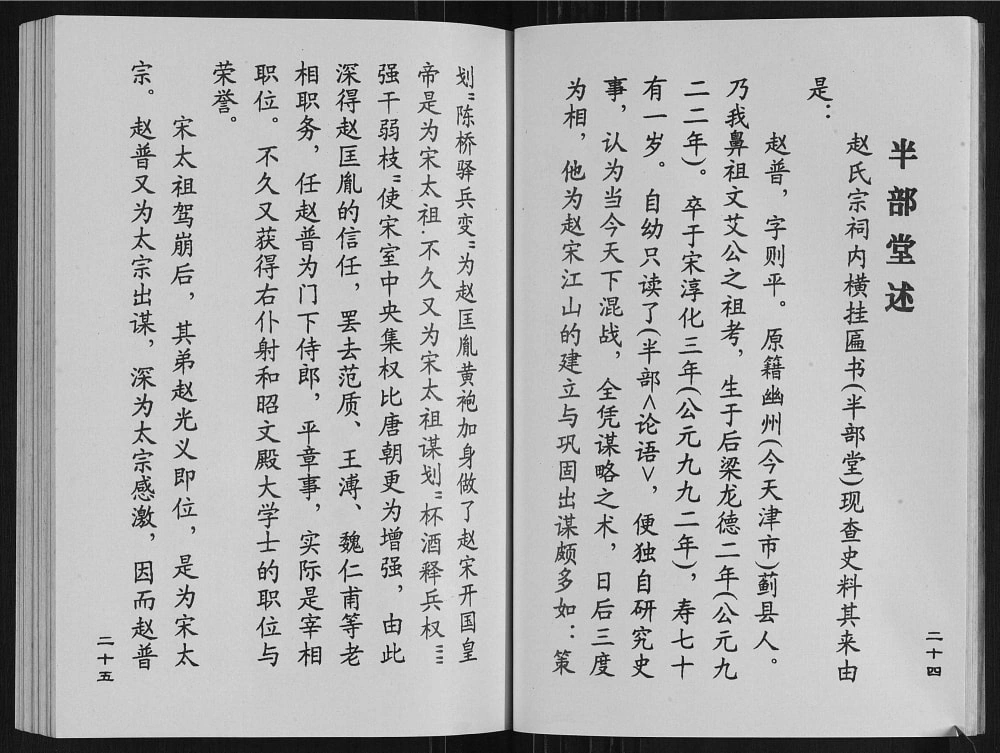 半部堂述
赵氏宗祠内横挂匾书(半部堂)现查史料其来由
是：
赵普，字则平。原籍幽州(今天津市)蓟县人。
乃我鼻祖文艾公之祖考，生于后梁龙德二年(公元九
二二年)。卒于宋淳化三年(公元九九二年)，寿七十
有一岁。自幼只读了(半部<论语>，便独自研究史
事，认为当今天下混战，全凭谋略之术，日后三度
为相，他为赵宋江山的建立与巩固出谋颇多如：策
二十四
划"陈桥驿兵变"为赵匡胤黄袍加身做了赵宋开国皇
帝是为宋太祖.不久又为宋太祖谋划"杯酒释兵权"""
强干弱枝"使宋室中央集权比唐朝更为增强，由此
深得赵匡胤的信任，罢去范质、王溥、魏仁甫等老
相职务，任赵普为门下侍郎，平章事，实际是宰相
职位。不久又获得右仆射和昭文殿大学士的职位与
荣誉。
宋太祖驾崩后，其弟赵光义即位，是为宋太
宗。赵普又为太宗出谋，深为太宗感激，因而赵普
二十五